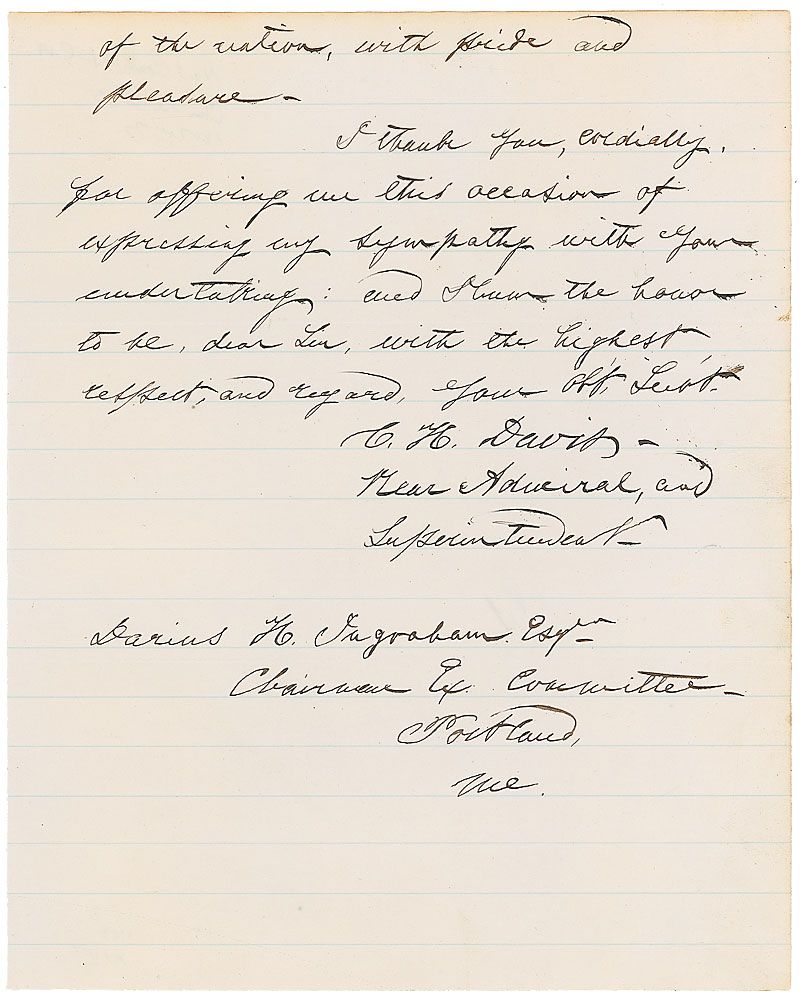 of the nation, with pride and
pleasure –
I thank you, cordially,
for offering me this occasion of
expressing my sympathy with your
undertaking; and I have the honor
to be, dear Sir, with the highest
respect, and regard, your obt. Servt.
C. H. Davis –
Rear Admiral, and
Superintendent –
Darius H. Ingraham Esqr
Chairman Ex. Committee –
Portland,
Me.